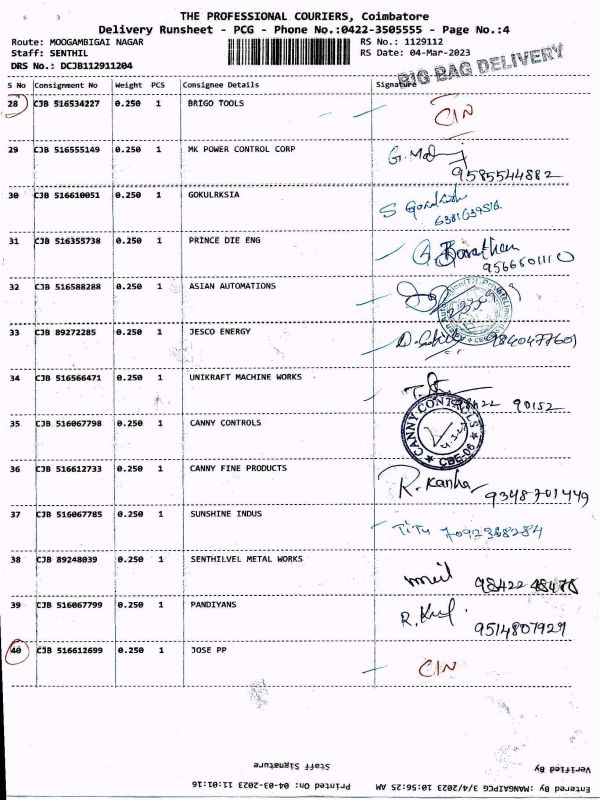 THE PROFESSIONAL COURIERS, Coimbatore
Delivery Runsheet - PCG - Phone No.:0422-3505555 - Page No.:4
Route: MOOGAMBIGAI NAGAR RS No.: 1129112
Staff: SENTHIL RS Date: 04-Mar-2023
DRS No.: DCJB112911204 BIG BAG DELIVERY
S No Consignment No Weight PCS Consignee Details Signature
28 CJB 516534227 0.250 1 BRIGO TOOLS CIN
29 CJB 516555149 0.250 1 MK POWER CONTROL CORP G. 9585544882
30 CJB 516610051 0.250 1 GOKULRKSIA S
31 CJB 516355738 0.250 1 PRINCE DIE ENG 9566601110
32 CJB 516588288 0.250 1 ASIAN AUTOMATIONS
33 CJB 89272285 0.250 1 JESCO ENERGY 9840477601
34 CJB 516566471 0.250 1 UNIKRAFT MACHINE WORKS 90152
35 CJB 516067798 0.250 1 CANNY CONTROLS CANNY CONTROLS CBE-06
36 CJB 516612733 0.250 1 CANNY FINE PRODUCTS R. Kanha 9348701449
37 CJB 516067785 0.250 1 SUNSHINE INDUS TiTu 7092368284
38 CJB 89248039 0.250 1 SENTHILVEL METAL WORKS 98422 48478
39 CJB 516067799 0.250 1 PANDIYANS R. 9514807929
40 CJB 516612699 0.250 1 JOSE PP CIN
Staff Signature Verified By
Printed On: 04-03-2023 11:01:16 Entered By: MANGAIPCG 3/4/2023 10:56:25 AM